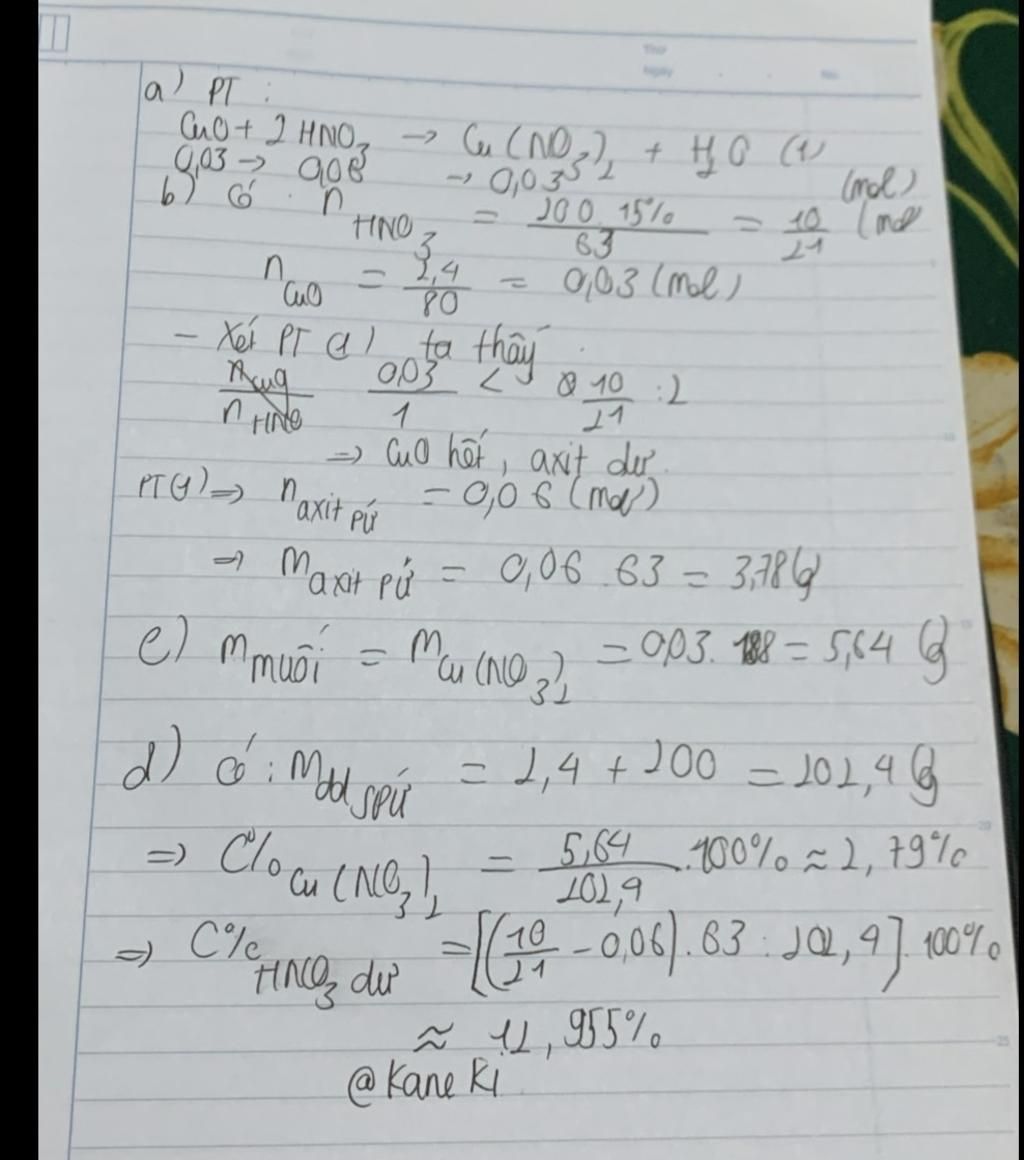 a) PT :
CuO + 2 HNO₃ → Cu(NO₃)₂ + H₂O (1)
0,03 → 0,06 → 0,03 (mol)
b) Có n HNO₃ = 200.15% / 63 = 10/21 (mol
n CuO = 2,4/80 = 0,03 (mol)
- Xét PT (1) ta thấy
0,03/1 < 10/21 : 2
=> CuO hết, axit dư
PT(1) => n axit pứ = 0,06 (mol)
=> m axit pứ = 0,06 . 63 = 3,78 (g)
c) m muối = m Cu(NO₃)₂ = 0,03. 188 = 5,64 (g)
d) Có : m dd spứ = 2,4 + 200 = 202,4 (g)
=> C% Cu(NO₃)₂ = 5,64/202,4 .100% ≈ 2,79%
=> C% HNO₃ dư = [(10/21 - 0,06) . 63 : 202,4] . 100%
≈ 12,955%
@Kane Ki